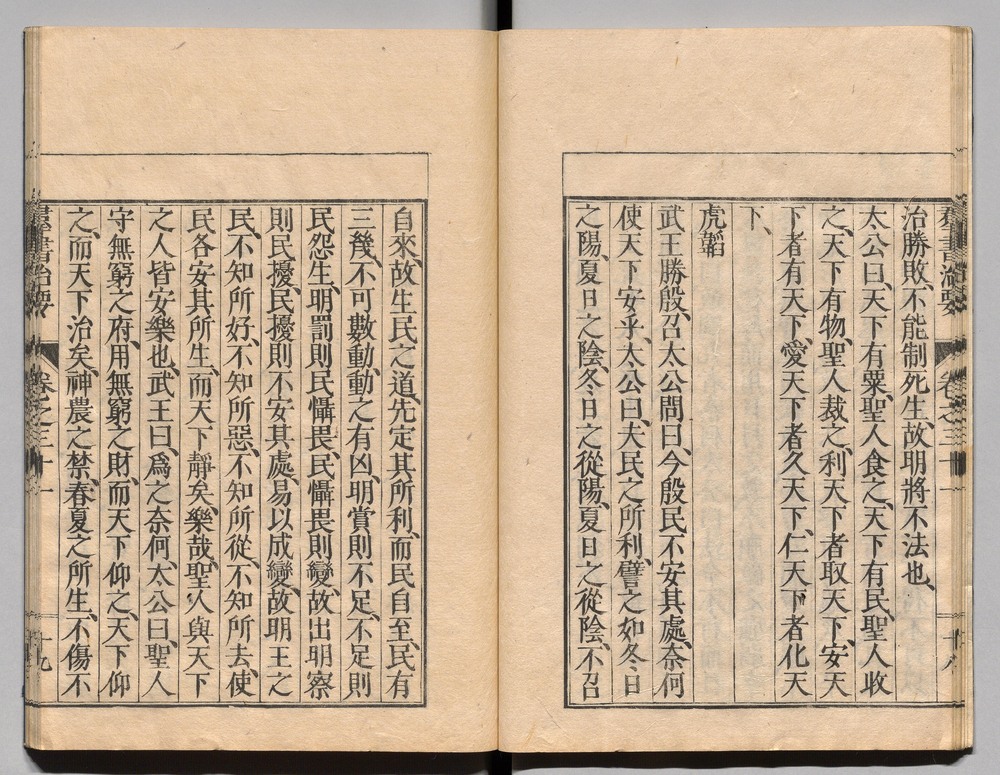 羣書治要 卷之三十一 十八
治勝敗、不能制死生、故明將不法也、
太公曰、天下有粟、聖人食之、天下有民、聖人收
之、天下有物、聖人裁之、利天下者取天下、安天
下者有天下、愛天下者久天下、仁天下者化天
下、
虎韜
武王勝殷、召太公問曰、今殷民不安其處、奈何
使天下安乎、太公曰、夫民之所利、譬之如冬日
之陽、夏日之陰、冬日之從陽、夏日之從陰、不召
自來、故生民之道、先定其所利、而民自至、民有
三幾、不可數動、動之有凶、明賞則不足、不足則
民怨生、明罰則民懾畏、民懾畏則變、故出明察
則民擾、民擾則不安其處、易以成變、故明王之
民、不知所好、不知所惡、不知所從、不知所去、使
民各安其所生、而天下靜矣、樂哉、聖人與天下
之人皆安樂也、武王曰、爲之奈何、太公曰、聖人
守無窮之府、用無窮之財、而天下仰之、天下仰
之、而天下治矣、神農之禁、春夏之所生、不傷不
羣書治要 卷之三十一 十九